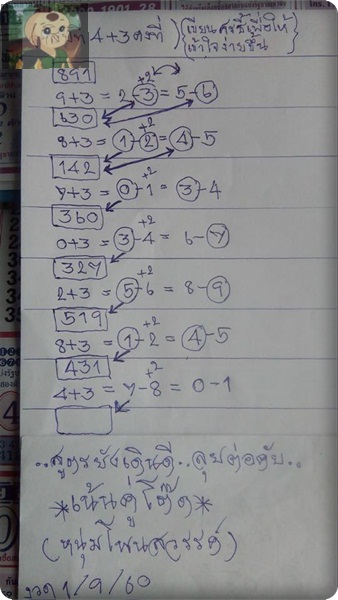 4+3 คงที่ ) { เขียนลูกชี้เพื่อให้
เข้าใจง่ายขึ้น }
891
+2
9+3 = 2-3 = 5-6
630
+2
8+3 = 1-2 = 4-5
142
+2
7+3 = 0-1 = 3-4
360
+2
0+3 = 3-4 = 6-7
327
+2
2+3 = 5-6 = 8-9
519
+2
8+3 = 1-2 = 4-5
431
+2
4+3 = 7-8 = 0-1
..สูตรยังเดินดี..ลุยต่อคับ..
*เน้นคู่โต๊ด*
(หนุ่มโพนสวรรค์)
งวด 1/9/60